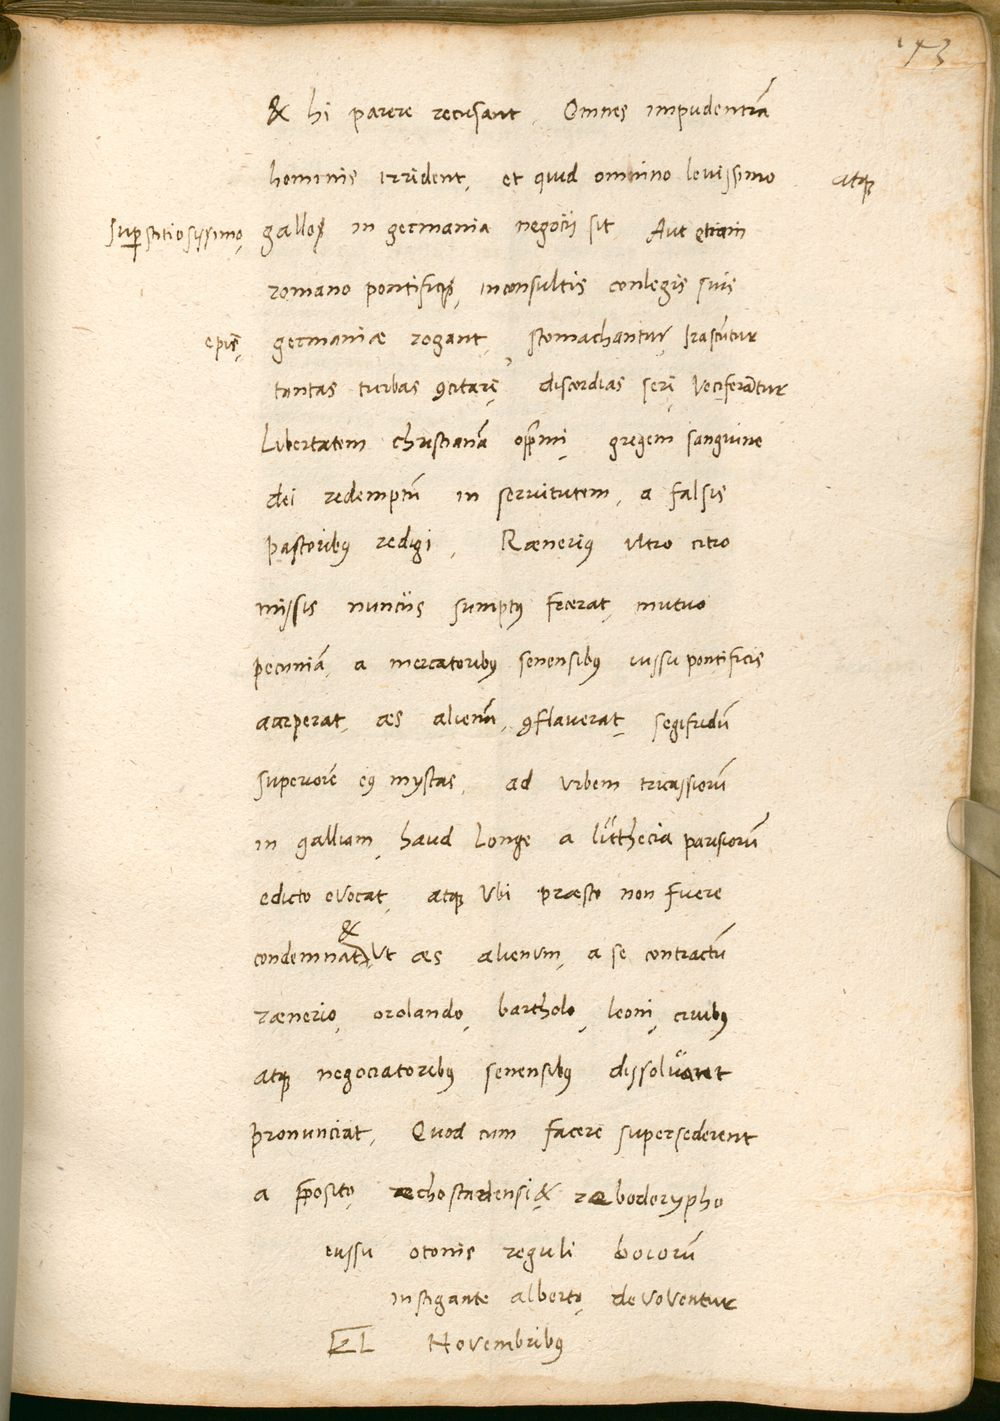 143
& hi parere recusant, Omnes impudentiā
hominis irrident, et quid omnino levissimo atqꝫ
superstitiosissimo, gallo in germania negocii sit Aut etiam
romano pontifici, inconsultis conlegis suis
epis, germaniæ rogant, stomachantur Irascūtur
tantas turbas ꝯcitare, discordias seri Vociferātur
Libertatem christianā opprimi, gregem sanguine
dei redemptū in servitutem, a falsis
pastoribꝰ redigi, Rænerius ultro citro
missis nunciis sumptꝰ fecerat, mutuo
pecuniā, a mercatoribꝰ senensibꝰ iussu pontificis
acceperat, æs alienū, ꝯflaverat, segifridū
superiorē eiꝰ mystas, ad Urbem tricassiorū
in galliam, haud longe a luthecia parisiorū
edicto evocat, atqꝫ Ubi præsto non fuere
condemnat, & Ut æs alienum, a se contractū
rænerio, orolando, bartholo, leoni, civibꝰ
atqꝫ negociatoribꝰ senensibꝰ dissoluant
pronunciat, Quod cum facere supersederent
a præposito, rechostardensi, & ræbodorypho
iussu otonis reguli boiorū
instigante alberto, devoventur
KL Novembribꝰ